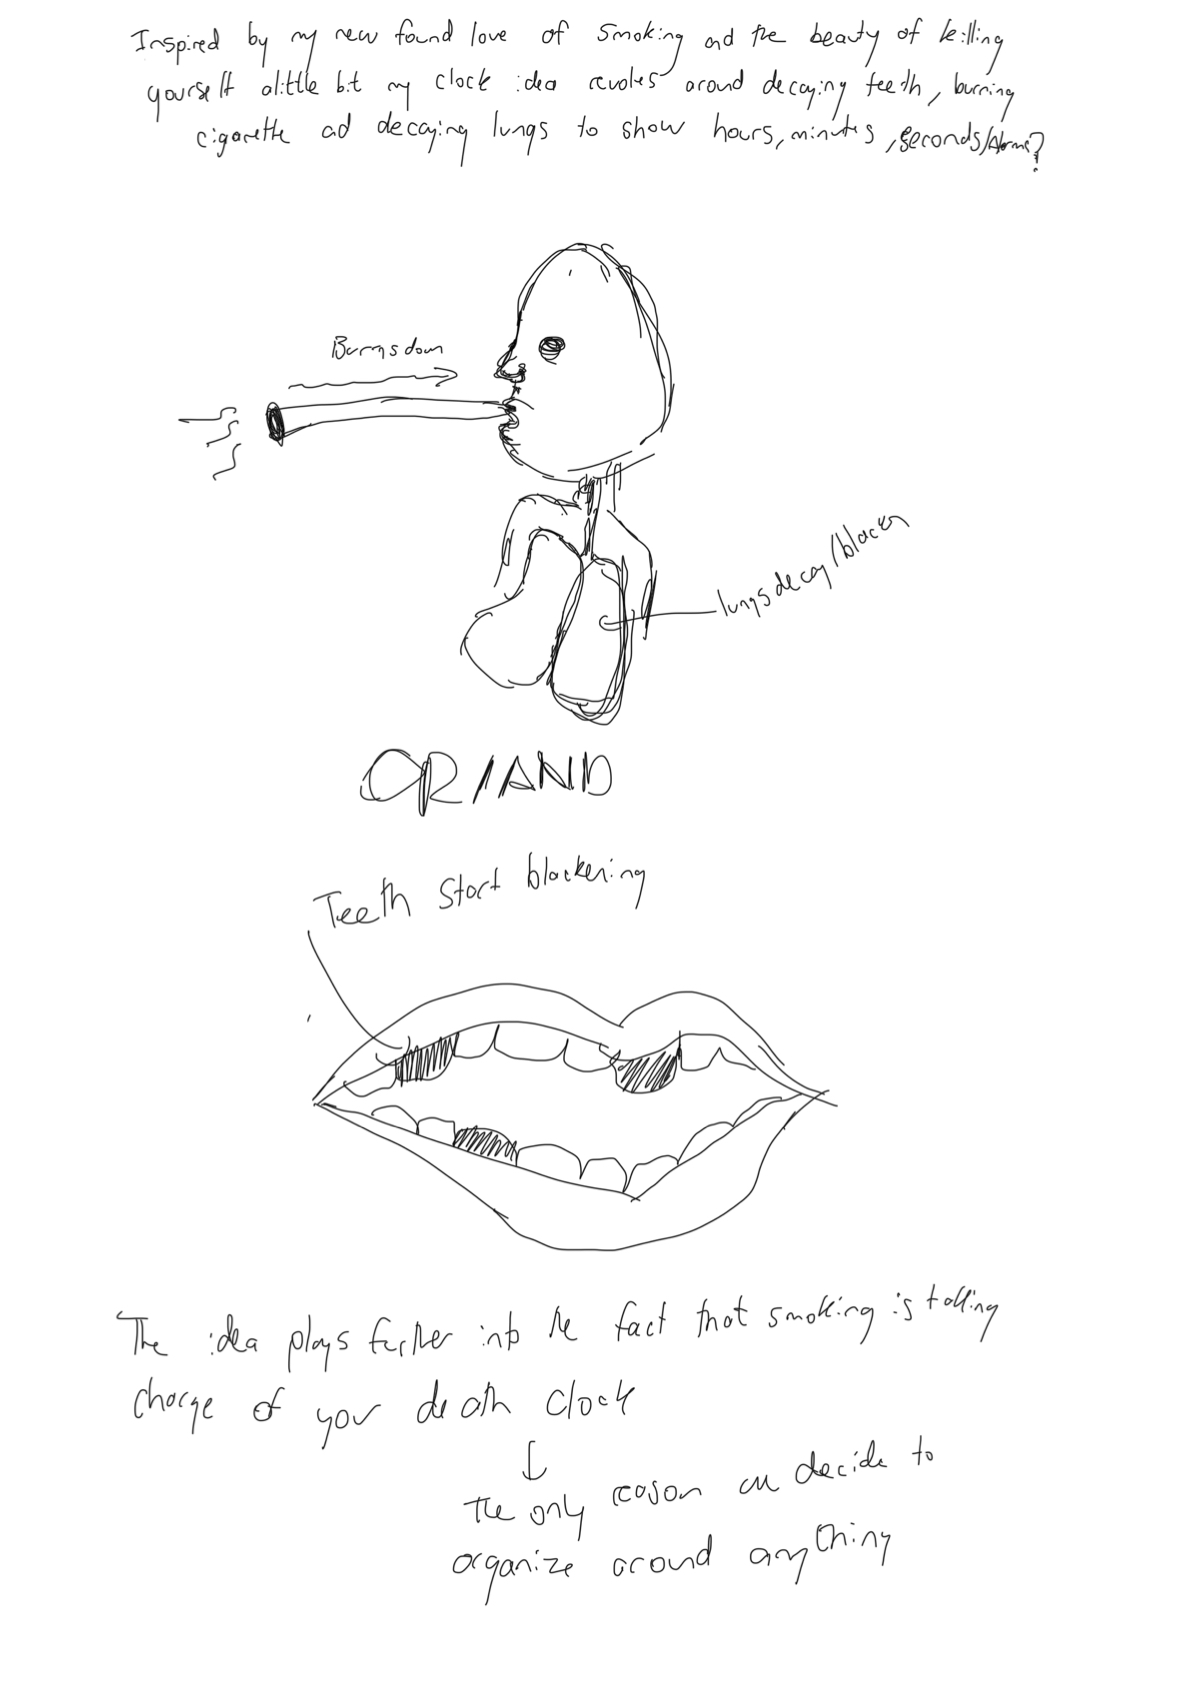 Inspired by my new found love of smoking and the beauty of killing
yourself alittle bit my clock idea revolves around decaying teeth, burning
cigarette ad decaying lungs to show hours, minutes, seconds/Alarms?
Burns down
lungs decay/blacken
OR/AND
Teeth start blackening
The idea plays further into the fact that smoking is taking
charge of your death clock
↓
the only reason we decide to
organize around anything